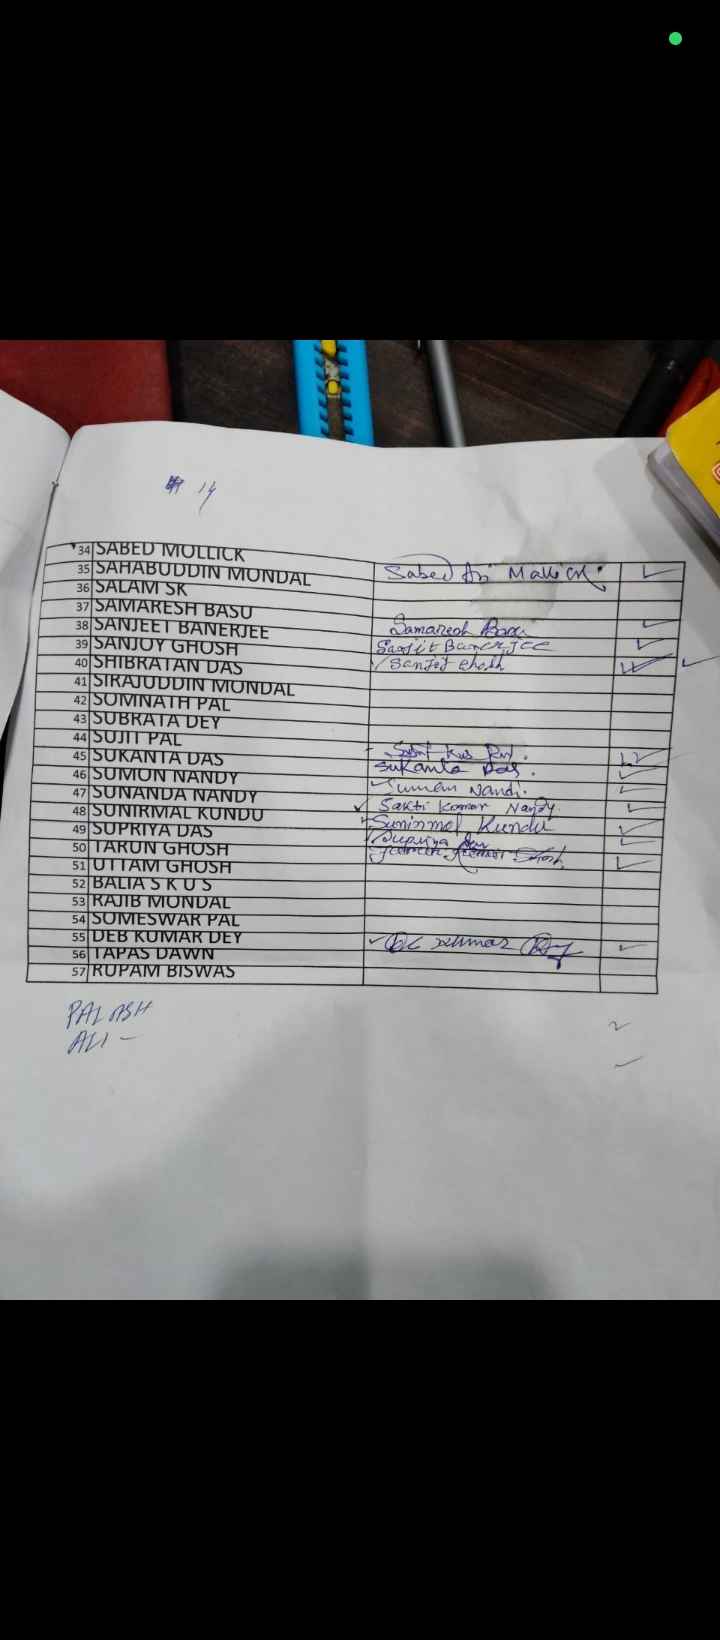 14
34 SABED MOLLICK Sabed Ali Mallick
35 SAHABUDDIN MONDAL
36 SALAM SK
37 SAMARESH BASU Samaresh Basu
38 SANJEET BANERJEE Sanjit Banerjee
39 SANJOY GHOSH Sanjoy Ghosh
40 SHIBRATAN DAS
41 SIRAJUDDIN MONDAL
42 SOMNATH PAL
43 SUBRATA DEY
44 SUJIT PAL
45 SUKANTA DAS Sukanta Das.
46 SUMON NANDY Suman Nandi.
47 SUNANDA NANDY Sakti Kumar Nandy.
48 SUNIRMAL KUNDU Sunirmal Kundu
49 SUPRIYA DAS Supriya Das
50 TARUN GHOSH Kumar Ghosh
51 UTTAM GHOSH
52 BALIA S K U S
53 RAJIB MONDAL
54 SOMESWAR PAL
55 DEB KUMAR DEY
56 TAPAS DAWN
57 RUPAM BISWAS
PALASH
ALI -